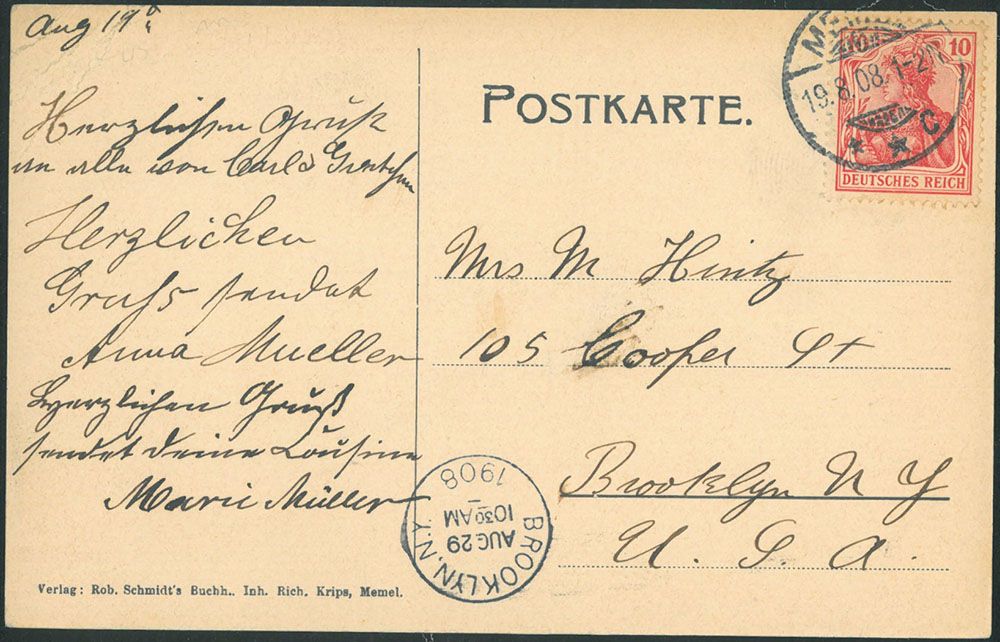 Aug 19
Herzlichen Gruß
an alle von Carl & Gretchen
Herzlichen
Gruss sendet
Anna Mueller
Herzlichen Gruß
sendet deine Cousine
Marie Müller
Verlag: Rob. Schmidt's Buchh.. Inh. Rich. Krips, Memel.
POSTKARTE.
10
DEUTSCHES REICH
19.8.08.1-2N
C
Mrs M Hintz
105 Cooper St
Brooklyn N Y
U. S. A.
BROOKLYN, N.Y.
AUG 29
10 30 AM
1908